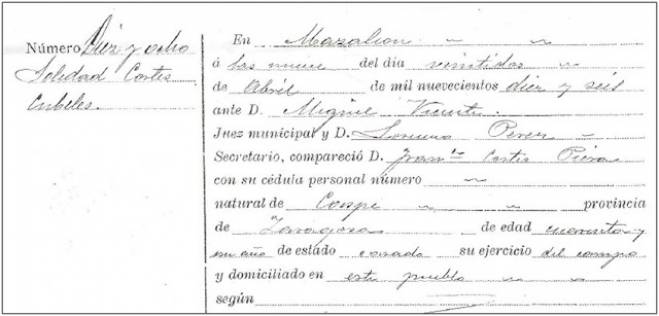 Número Diez y ocho
Soledad Cortés
Cubeles.
En Mazaleon ~ ~
á las nueve del día veintidos
de Abril de mil nuevecientos diez y seis
ante D. Miguel Vicente
Juez municipal y D. Lorenzo Perez ~
Secretario, compareció D. Franco Cortés Piera
con su cédula personal número ~
natural de Caspe ~ ~ provincia
de Zaragoza de edad cuarenta y
un año de estado casado su ejercicio del campo
y domiciliado en este pueblo ~ ~
según